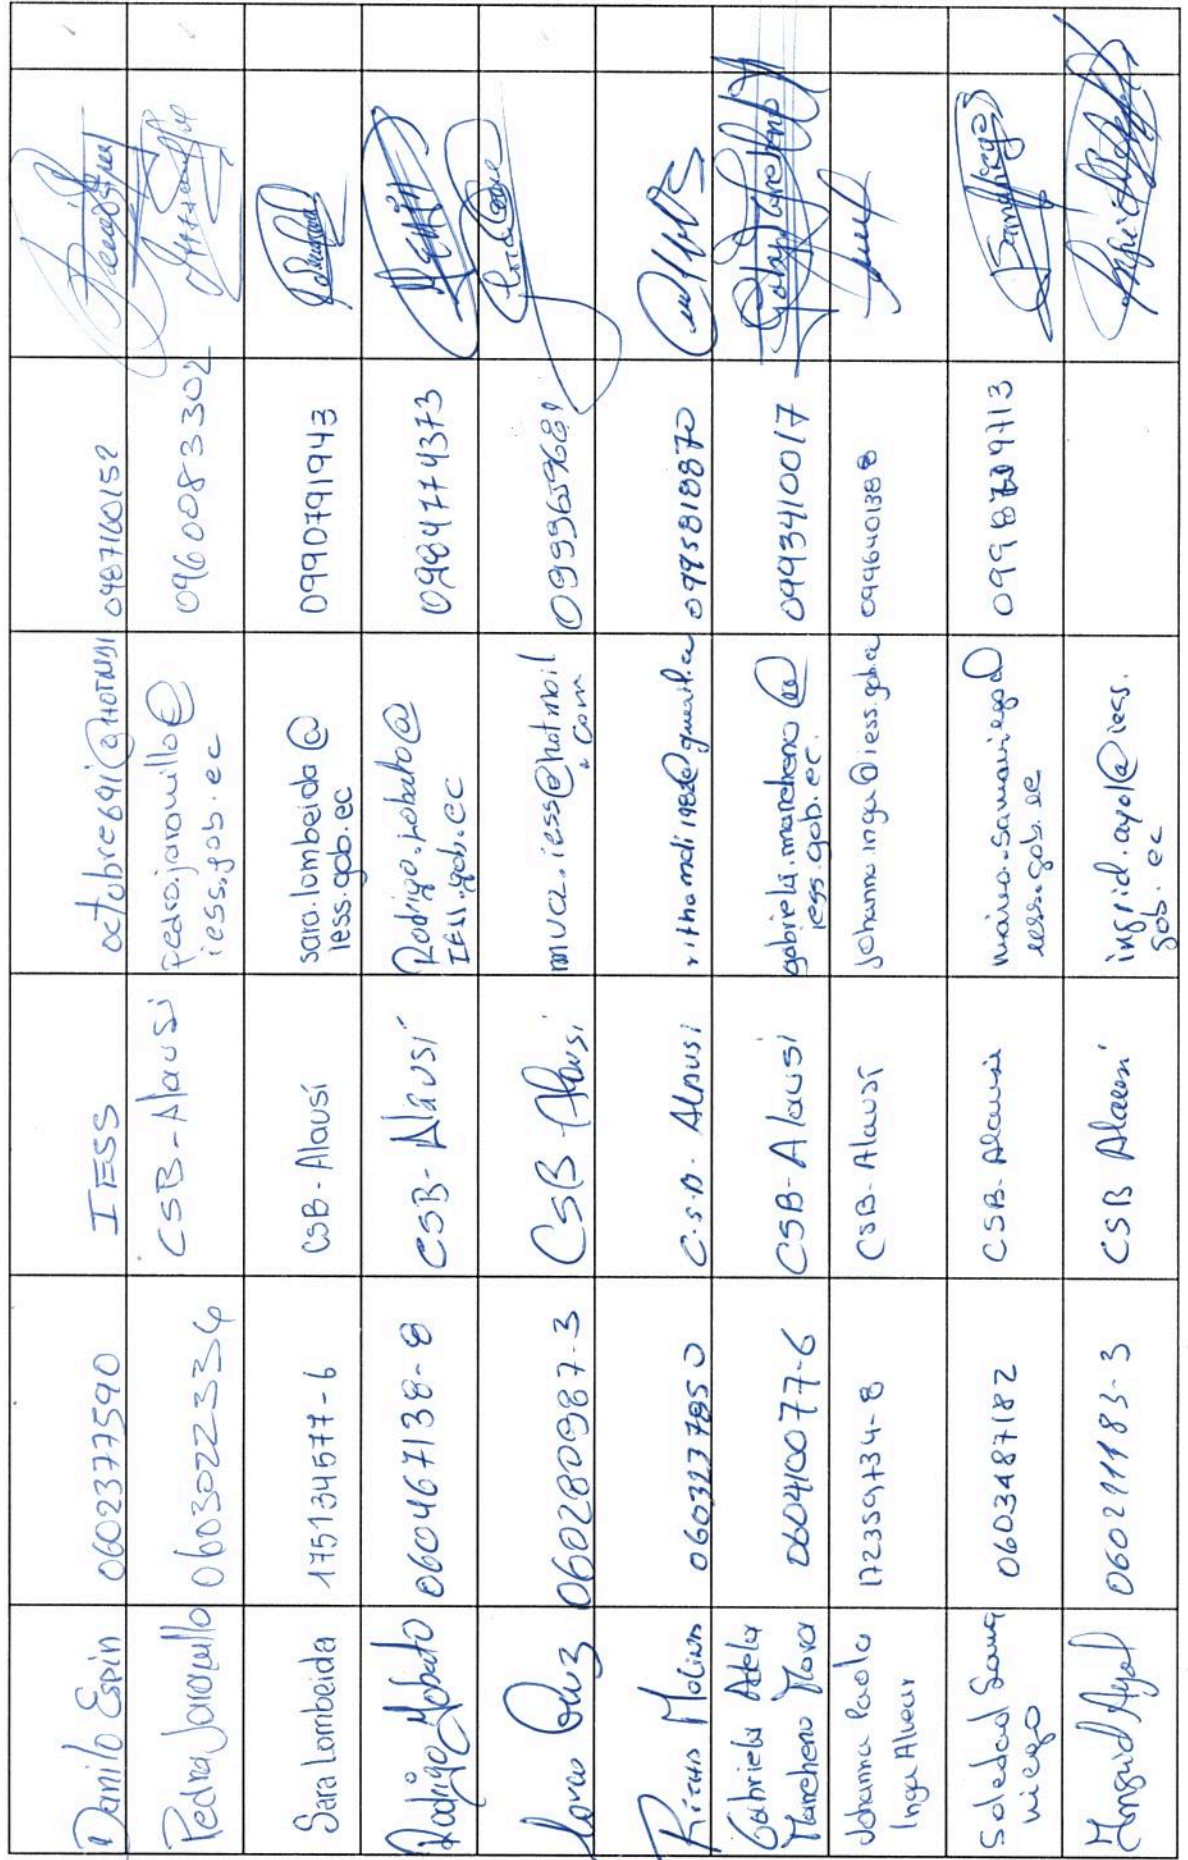 Danilo Espin 0602377590 IESS octubre691@HOTMAIL 0987160152
Pedro Jaramillo 0603022334 CSB-Alausi pedro.jaramillo@
iess.gob.ec 0960083302
Sara Lombeida 175134577-6 CSB-Alausí sara.lombeida@
iess.gob.ec 0990791943
Rodrigo Lobato 060467138-8 CSB-Alausí Rodrigo.lobato@
IESS.gob.ec 0984774373
060280987-3 CSB Alausi mvcz.iess@hotmail
.com 0999659689
Molina 0603237850 C.S.B. Alausi 0995818870
Gabriela Adela
Marcheno Mora 060410077-6 CSB-Alausi gabriela.marcheno@
iess.gob.ec. 0993410017
Johanna Paola
Inga Alvear 172359734-8 CSB-Alausí johanna.inga@iess.gob.ec 0996401388
Soledad Sama
niego 0603487182 CSB-Alausi maria.samaniego@
iess.gob.ec
Ingrid Ayol 060211183-3 CSB Alausi ingrid.ayol@iess.
gob.ec